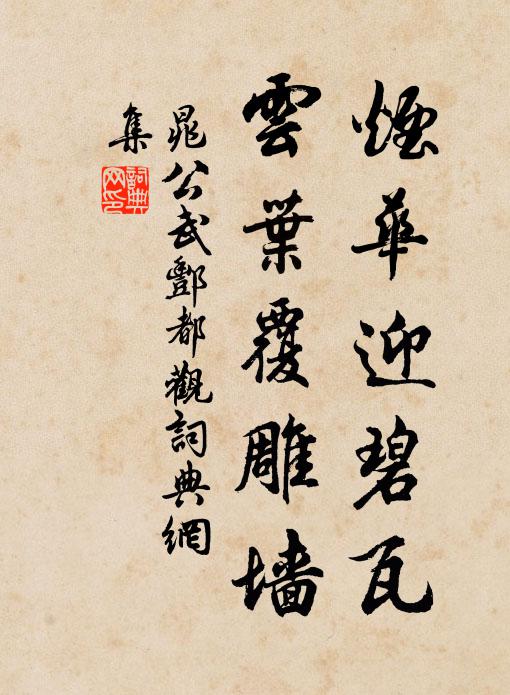 煙華迎碧瓦
雲葉覆雕墻
晁公武酆都觀詞典網
集
詞典网印